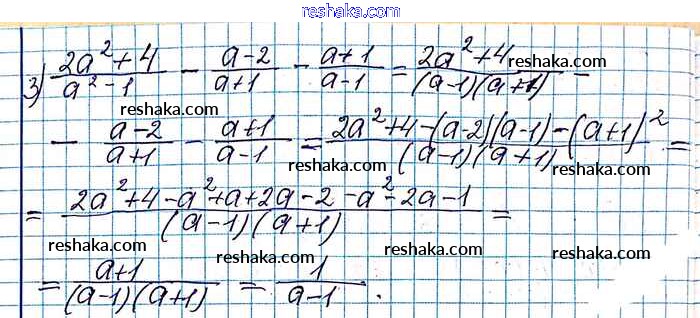 reshaka.com
3) (2a²+4)/(a²-1) - (a-2)/(a+1) - (a+1)/(a-1) = (2a²+4)/((a-1)(a+1)) -
reshaka.com
reshaka.com
reshaka.com
- (a-2)/(a+1) - (a+1)/(a-1) = (2a²+4-(a-2)(a-1)-(a+1)²)/((a-1)(a+1)) =
reshaka.com
reshaka.com
= (2a²+4-a²+a+2a-2-a²-2a-1)/((a-1)(a+1)) =
reshaka.com
reshaka.com
reshaka.com
= (a+1)/((a-1)(a+1)) = 1/(a-1).